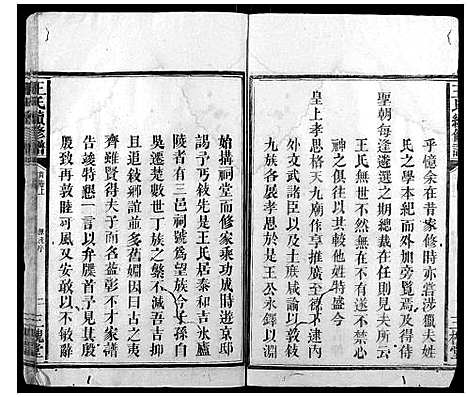 王氏續修譜
乎憶余在昔家修時亦嘗涉獵夫姓
氏之學本紀而外加旁覽焉及得待
聖朝每逢遴選之期總裁在任則見夫所云
王氏無世不然無在不有送不禁以
神之俱其較他姓特盛今
皇上孝思格天九廟作享推廣至德不逮內
外文武諸臣以及士庶咸諭以敦敘
九族各展孝思於是王公永鐸以淵
始搆祠堂而修家乘功成時遊京邸
謁予丐敘先是王氏居泰和吉水廬
陵者有三邑祠號爲望族今子孫自
吳遷楚數世丁族之繁不減吾吉抑
且追敘鄉誼並多舊媚因曰古之以
齊雖賢得夫子而名益彰不才家譜
告竣特懇一言以弁牒首予見其殷
殷致再敦睦可風又安敢以不敏辭
王氏續修譜
三槐堂